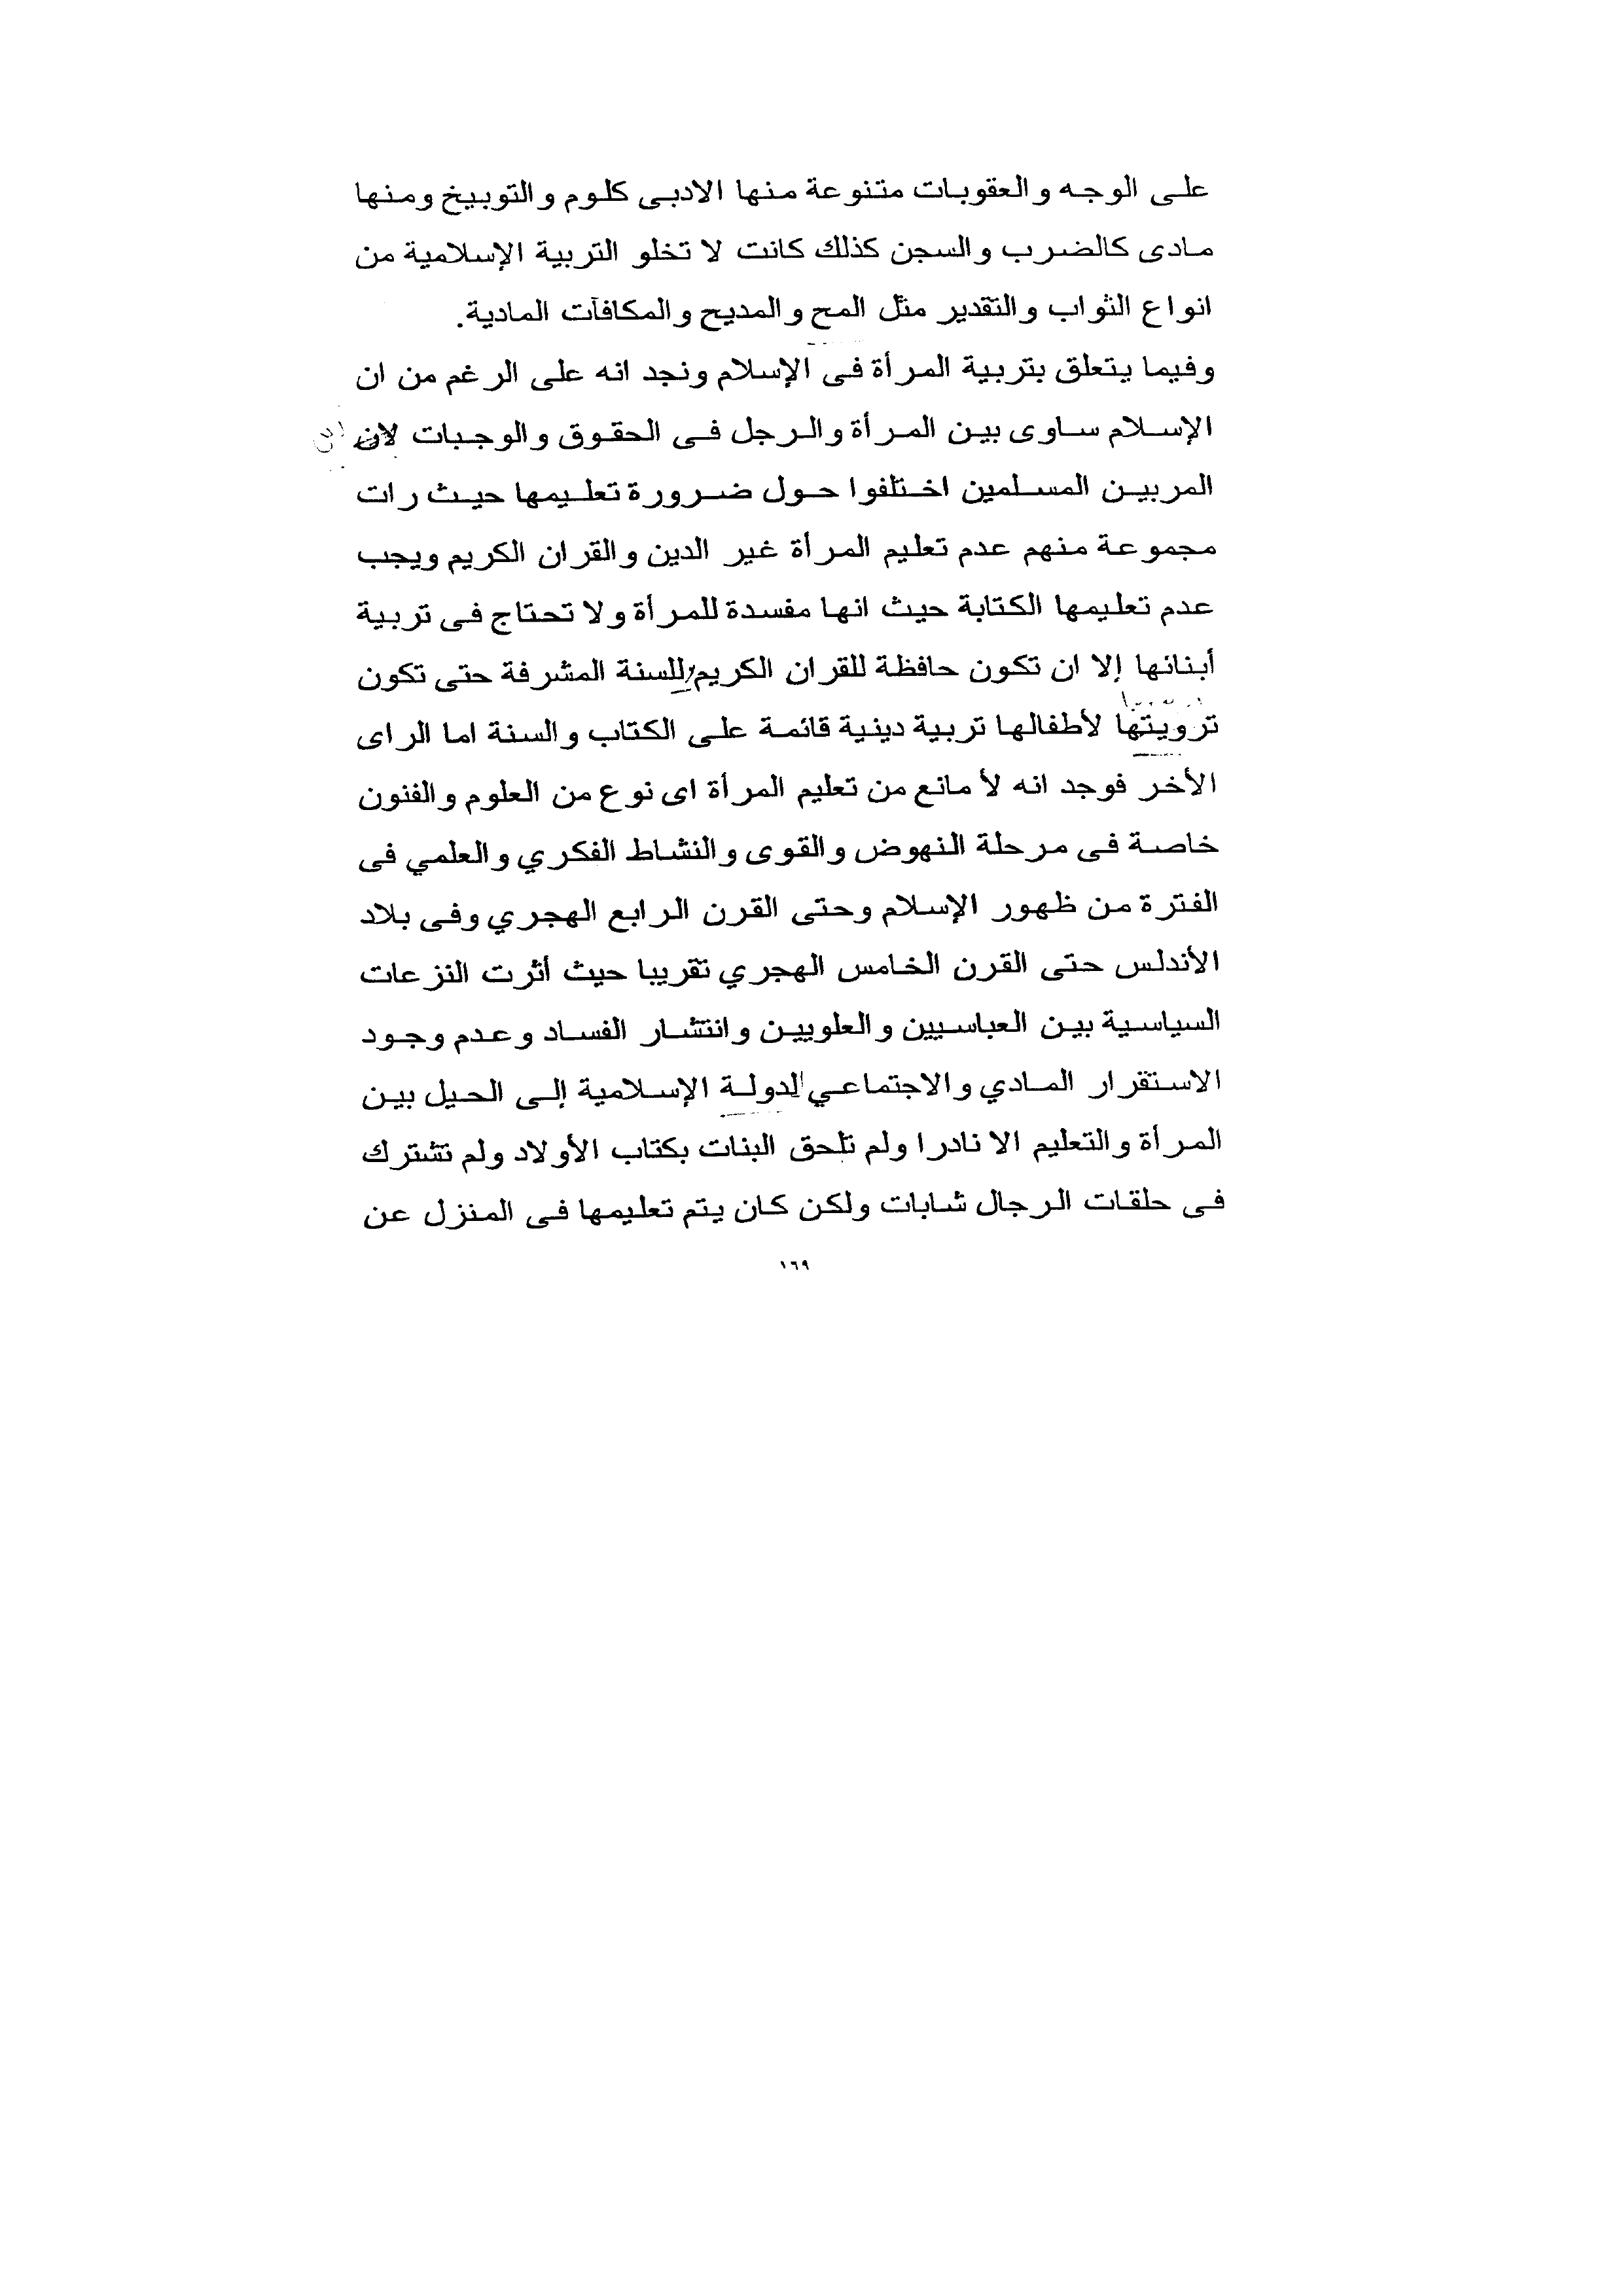 على الوجه والعقوبات متنوعة منها الادبى كلوم والتوبيخ ومنها
مادى كالضرب والسجن كذلك كانت لا تخلو التربية الإسلامية من
انواع الثواب والتقدير مثل المح والمديح والمكافآت المادية.
وفيما يتعلق بتربية المرأة فى الإسلام ونجد انه على الرغم من ان
الإسلام ساوى بين المرأة والرجل فى الحقوق والوجبات لان
المربين المسلمين اختلفوا حول ضرورة تعليمها حيث رات
مجموعة منهم عدم تعليم المرأة غير الدين والقران الكريم ويجب
عدم تعليمها الكتابة حيث انها مفسدة للمرأة ولا تحتاج فى تربية
أبنائها إلا ان تكون حافظة للقران الكريم للسنة المشرفة حتى تكون
ترويتها لأطفالها تربية دينية قائمة على الكتاب والسنة اما الراى
الأخر فوجد انه لأ مانع من تعليم المرأة اى نوع من العلوم والفنون
خاصة فى مرحلة النهوض والقوى والنشاط الفكري والعلمي فى
الفترة من ظهور الإسلام وحتى القرن الرابع الهجري وفى بلاد
الأندلس حتى القرن الخامس الهجري تقريبا حيث أثرت النزعات
السياسية بين العباسيين والعلويين وانتشار الفساد وعدم وجود
الاستقرار المادي والاجتماعي لدولة الإسلامية إلى الحيل بين
المرأة والتعليم الا نادرا ولم تلحق البنات بكتاب الأولاد ولم تشترك
فى حلقات الرجال شابات ولكن كان يتم تعليمها فى المنزل عن
١٦٩